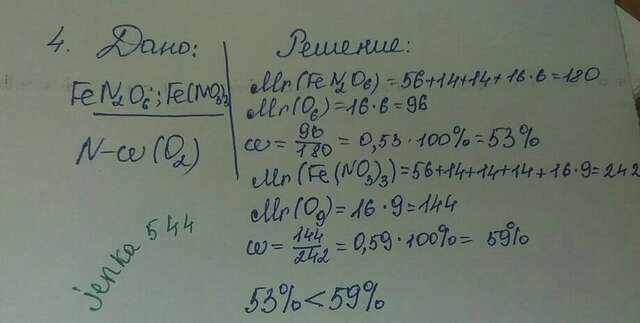 4. Дано:
FeN₂O₆; Fe(NO₃)₃
N-ω(O₂)
Решение:
Mr(FeN₂O₆)=56+14+14+16·6=180
Mr(O₆)=16·6=96
ω=96/180=0,53·100%=53%
Mr(Fe(NO₃)₃)=56+14+14+14+16·9=242
Mr(O₉)=16·9=144
ω=144/242=0,59·100%=59%
53%<59%
jenka 544